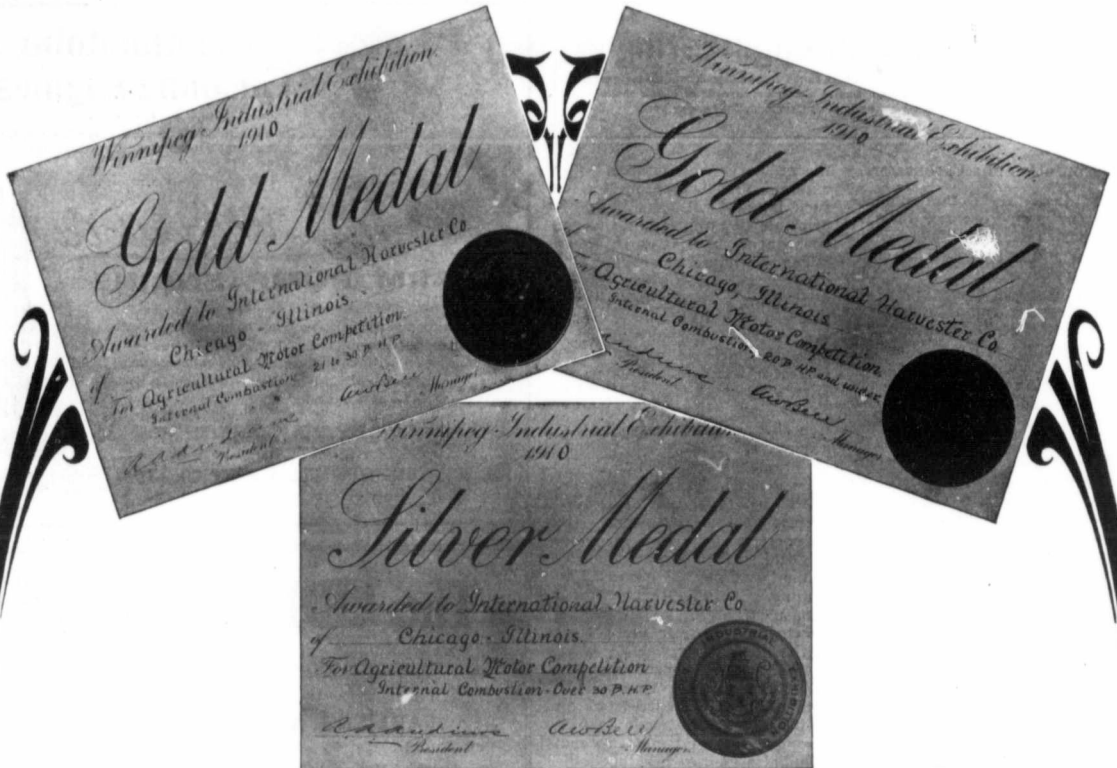 Winnipeg Industrial Exhibition.
1910
Gold Medal
Awarded to International Harvester Co
of Chicago - Illinois
For Agricultural Motor Competition
Internal Combustion 21 to 30 B.H.P.
President
AW Bell Manager
Winnipeg Industrial Exhibition.
1910
Gold Medal
Awarded to International Harvester Co.
Chicago, Illinois
For Agricultural Motor Competition
Internal Combustion 20 B HP and under
President
AW Bell Manager
Winnipeg Industrial Exhibition
1910
Silver Medal
Awarded to International Harvester Co
of Chicago - Illinois
For Agricultural Motor Competition
Internal Combustion - Over 30 B.H.P.
President
AW Bell Manager
INDUSTRIAL EXHIBITION